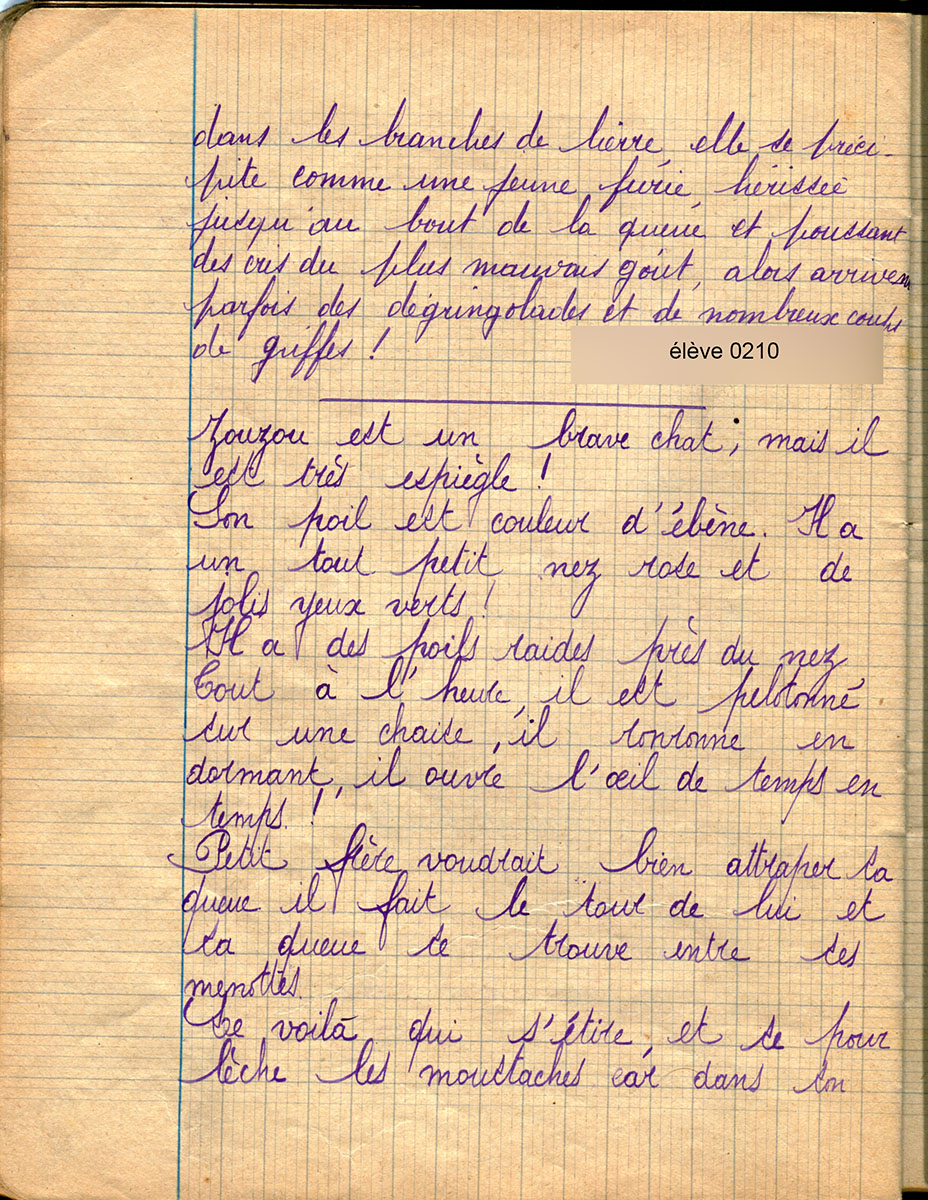 dans les branches de lierre, elle se préci-
pite comme une jeune furie, hérissée
jusqu'au bout de la queue et poussant
des cris du plus mauvais goût, alors arrivent
parfois des dégringolades et de nombreux coups
de griffes !
élève 0210
Zouzou est un brave chat, mais il
est très espiègle !
Son poil est couleur d'ébène. Il a
un tout petit nez rose et de
jolis yeux verts !
Il a des poils raides près du nez,
Tout à l'heure, il est pelotonné
sur une chaise, il ronronne en
dormant, il ouvre l'œil de temps en
temps. !
Petit frère voudrait bien attraper sa
queue il fait le tour de lui et
sa queue se trouve entre ses
menottes.
Le voilà qui s'étire, et se pour
lèche les moustaches car dans son